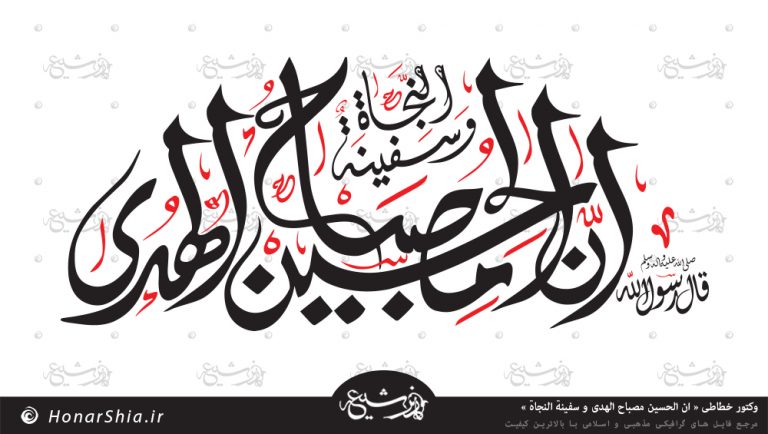 قال رسول الله
صلی الله علیه و آله و سلم
انّ الحسین مصباح الهدی
و سفینة
النّجاة
وکتور خطاطی « ان الحسین مصباح الهدی و سفینة النجاة »
مرجع فایل های گرافیکی مذهبی و اسلامی با بالاترین کیفیت
هنر شیعه
© HonarShia.ir